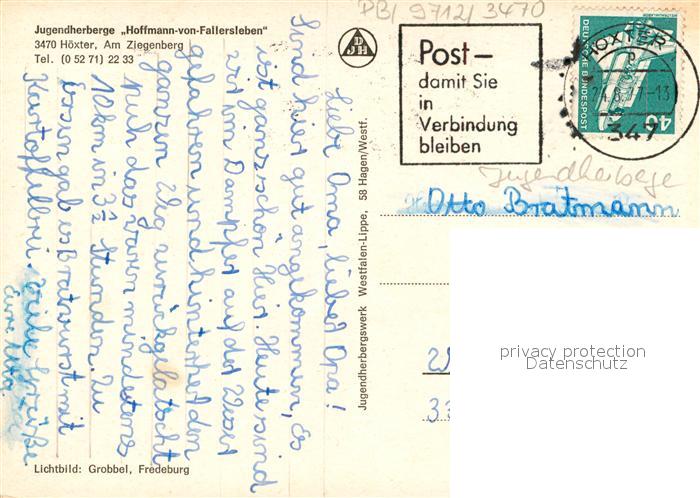 PB/ 9712/3470
Jugendherberge „Hoffmann-von-Fallersleben"
3470 Höxter, Am Ziegenberg
Tel. (0 52 71) 22 33
DJH
Post–
damit Sie
in
Verbindung
bleiben
HÖXTER
347
DEUTSCHE BUNDESPOST
40
Jugendherberge
Otto Bratmann
Liebe Oma, lieber Opa!
Sind hier gut angekommen, Es
ist ganz schön hier. Heute sind
wir im Dampfer auf der Weser
gefahren und hinterher den
ganzen Weg zurückgelatscht
Puh das waren mindestens
10 km in 3½ Stunden. Zu
Essen gab es Bratwurst mit
Kartoffelbrei. Viele Grüße
Eure Uta
Jugendherbergswerk Westfalen-Lippe, 58 Hagen/Westf.
33
Lichtbild: Grobbel, Fredeburg
privacy protection
Datenschutz